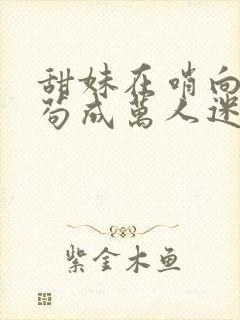 甜妹在哨向
苟成萬人迷
紫金木鱼